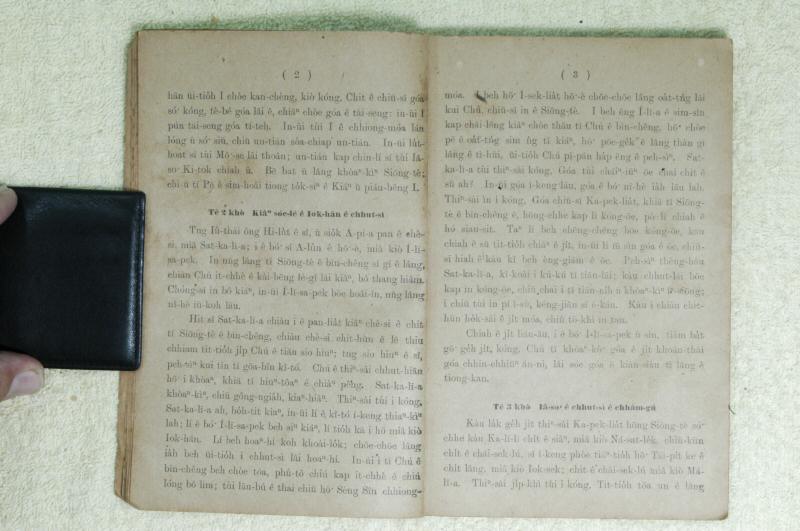 ( 2 )
hān ūi-tio̍h I chòe kan-chèng, kiò kóng, Chit ê chiū-sī góa
só͘ kóng, tè-bé góa lâi ê, chiâⁿ chòe góa ê tāi-seng: in-ūi I
pún tāi-seng góa tì-teh. In-ūi tùi I ê chhiong-móa lán
lóng ū só͘ siū, chiū un-tián sòa-chiap un-tián. In-ūi lu̍t-
hoat sī tùi Mô͘-se lâi thoân; un-tián kap chin-lí sī tùi Iâ-
so͘ Ki-tok chiah ū. Bē bat ū lâng khòaⁿ-kìⁿ Siōng-tè;
chí-ū tī Pē ê sim-hoâi tiong to̍k-siⁿ ê Kiáⁿ ū piáu-bêng I.
Tē 2 khò Kiâⁿ sóe-lé ê Iok-hān ê chhut-sì
Tng Iû-thài ông Hi-lu̍t ê sî, ū sio̍k A-pí-a pan ê chè-
si, miâ Sat-ka-lī-a; i ê bó͘ sī A-lûn ê hō͘-è, miâ kiò Í-lī-
sa-pek. In nn̄g lâng tī Siōng-tè ê bīn-chêng sī gī ê lâng,
chiàu Chú it-chhè ê kài-bēng lé-gî lâi kiâⁿ, bô thang hiâm.
Chóng-sī in bô kiáⁿ, in-ūi Í-lī-sa-pek bōe hoâi-īn, nn̄g lâng
nî-hè iū-koh lāu.
Hit sî Sat-ka-lī-a chiàu i ê pan-lia̍t kiâⁿ chè-si ê chit
tī Siōng-tè ê bīn-chêng, chiàu chè-si chit-hūn ê lē thiu
chhiam tit-tio̍h ji̍p Chú ê tiān sio hiuⁿ; tng sio hiuⁿ ê sî,
peh-sìⁿ kui tīn tī gōa-bīn kî-tó. Chú ê thiⁿ-sài chhut-hiān
hō͘ i khòaⁿ, khiā tī hiuⁿ-tôaⁿ ê chiàⁿ pêng. Sat-ka-lī-a
khòaⁿ-kìⁿ, chiū gông-ngia̍h, kiaⁿ-hiâⁿ. Thiⁿ-sài tùi i kóng,
Sat-ka-lī-a ah, bo̍h-tit kiaⁿ, in-ūi lí ê kî-tó í-keng thiaⁿ-kìⁿ
lah; lí ê bó͘ Í-lī-sa-pek beh siⁿ kiáⁿ, lí tio̍h kā i hō miâ kiò
Iok-hān. Lí beh hoaⁿ-hí koh khoài-lo̍k; chōe-chōe lâng
ia̍h beh ūi-tio̍h i chhut-sì lâi hoaⁿ-hí. In-ūi i tī Chú ê
bīn-chêng beh chòe tōa, phû-tô chiú kap it-chhè ê chiú
lóng bô lim; tùi lāu-bú ê thai chiū hō͘ Sèng Sîn chhiong-
( 3 )
móa. I beh hō͘ Í-sek-lia̍t hō͘-è chōe-chōe lâng oa̍t-tńg lâi
kui Chú, chiū-sī in ê Siōng-tè. I beh ēng Í-lī-a ê sim-sîn
kap châi-lêng kiâⁿ chòe thâu tī Chú ê bīn-chêng, hō͘ chòe
pē ê oa̍t-tńg sim ǹg tī kiáⁿ, hō͘ pōe-ge̍k ê lâng thàn gī
lâng ê tì-hūi, ūi-tio̍h Chú pī-pān ha̍p ēng ê peh-sìⁿ. Sat-
ka-lī-a tùi thiⁿ-sài kóng, Góa tùi cháiⁿ-iūⁿ ōe chai chit ê
sū ah? In-ūi góa í-keng lāu, góa ê bó͘ nî-hè ia̍h lāu lah.
Thiⁿ-sài ìn i kóng, Góa chiū-sī Ka-pek-lia̍t, khiā tī Siōng-
tè ê bīn-chêng ê, hōng-chhe kap lí kóng-ōe, pò lí chiah ê
hó siau-sit. Taⁿ lí beh chēng-chēng bōe kóng-ōe, kàu
chiah ê sū tit-tio̍h chiâⁿ ê ji̍t, in-ūi lí m̄ sìn góa ê ōe, chiū-
sī hiah ê kàu kî beh èng-giām ê ōe. Peh-sìⁿ thèng-hāu
Sat-ka-lī-a, kî-koài i kú-kú tī tiān-lāi; kàu chhut-lâi bōe
kap in kóng-ōe, chiū chai i tī tiān-ni̍h ū khòaⁿ-kìⁿ īⁿ-siōng;
i chiū tùi in pí í-sù, kèng-jiân sī ó-káu. Kàu i chiàu chit-
hūn ho̍k-sāi ê ji̍t móa, chiū tò-khì in tau.
Chiah ê ji̍t hāu-āu, i ê bó͘ Í-lī-sa-pek ū sin, tiàm ba̍t
gō͘ ge̍h ji̍t, kóng, Chú tī khòaⁿ-kò͘ góa ê ji̍t khoán-thāi
góa chhin-chhiūⁿ án-ni, lâi sóe góa ê kiàn-siàu tī lâng ê
tiong-kan.
Tē 3 khò Iâ-so͘ ê chhut-sì ê chhám-gú
Kàu la̍k ge̍h ji̍t thiⁿ-sài Ka-pek-lia̍t hōng Siōng-tè só͘
chhe kàu Ka-lī-lī chi̍t ê siâⁿ, miâ kiò Ná-sat-le̍k, chiū-kūn
chi̍t ê chāi-sek-lú, sī í-keng phòe tiāⁿ-tio̍h hō͘ Tāi-pi̍t ke ê
chi̍t lâng, miâ kiò Iok-sek; chit ê chāi-sek-lú miâ kiò Má-
lī-a. Thiⁿ-sài ji̍p-khì tùi i kóng, Tit-tio̍h tōa un ê lâng